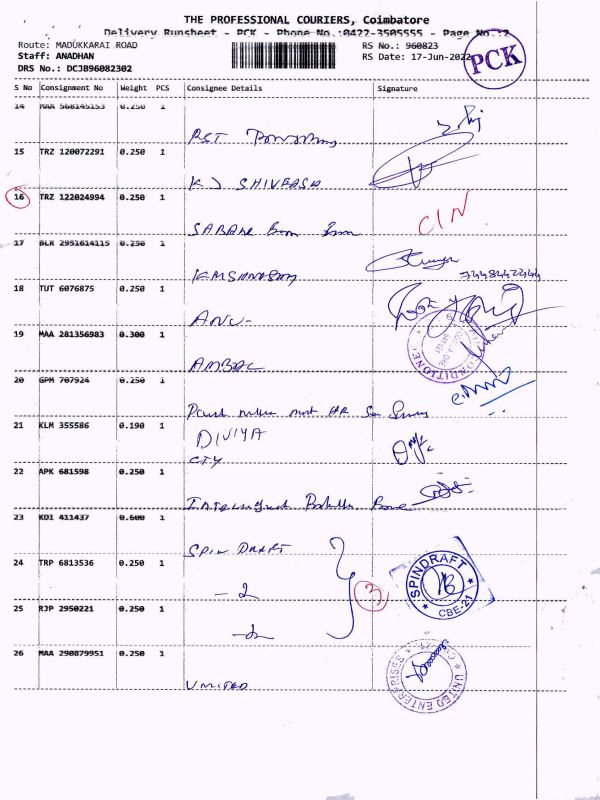 THE PROFESSIONAL COURIERS, Coimbatore
Delivery Runsheet - PCK - Phone No.:0422-3505555 - Page No.:2
Route: MADUKKARAI ROAD RS No.: 960823
Staff: ANADHAN RS Date: 17-Jun-2022
DRS No.: DCJB96082302
PCK
S No Consignment No Weight PCS Consignee Details Signature
14 MAA 568145153 0.250 1
RST
15 TRZ 120072291 0.250 1
KJ SHIVERSH
16 TRZ 122024994 0.250 1
CIN
17 BLR 2951614115 0.250 1
7448442444
18 TUT 6076875 0.250 1
ANU-
19 MAA 281356983 0.300 1
AMBAC
20 GPM 707924 0.250 1
21 KLM 355586 0.190 1
DIVIYA
CTY
22 APK 681598 0.250 1
23 KDI 411437 0.600 1
SPIN DRAFT
24 TRP 6813536 0.250 1
-2
3
SPINDRAFT
CBE-21
25 RJP 2950221 0.250 1
-2
26 MAA 290879951 0.250 1
UNITED
UNITED ENTERPRISES